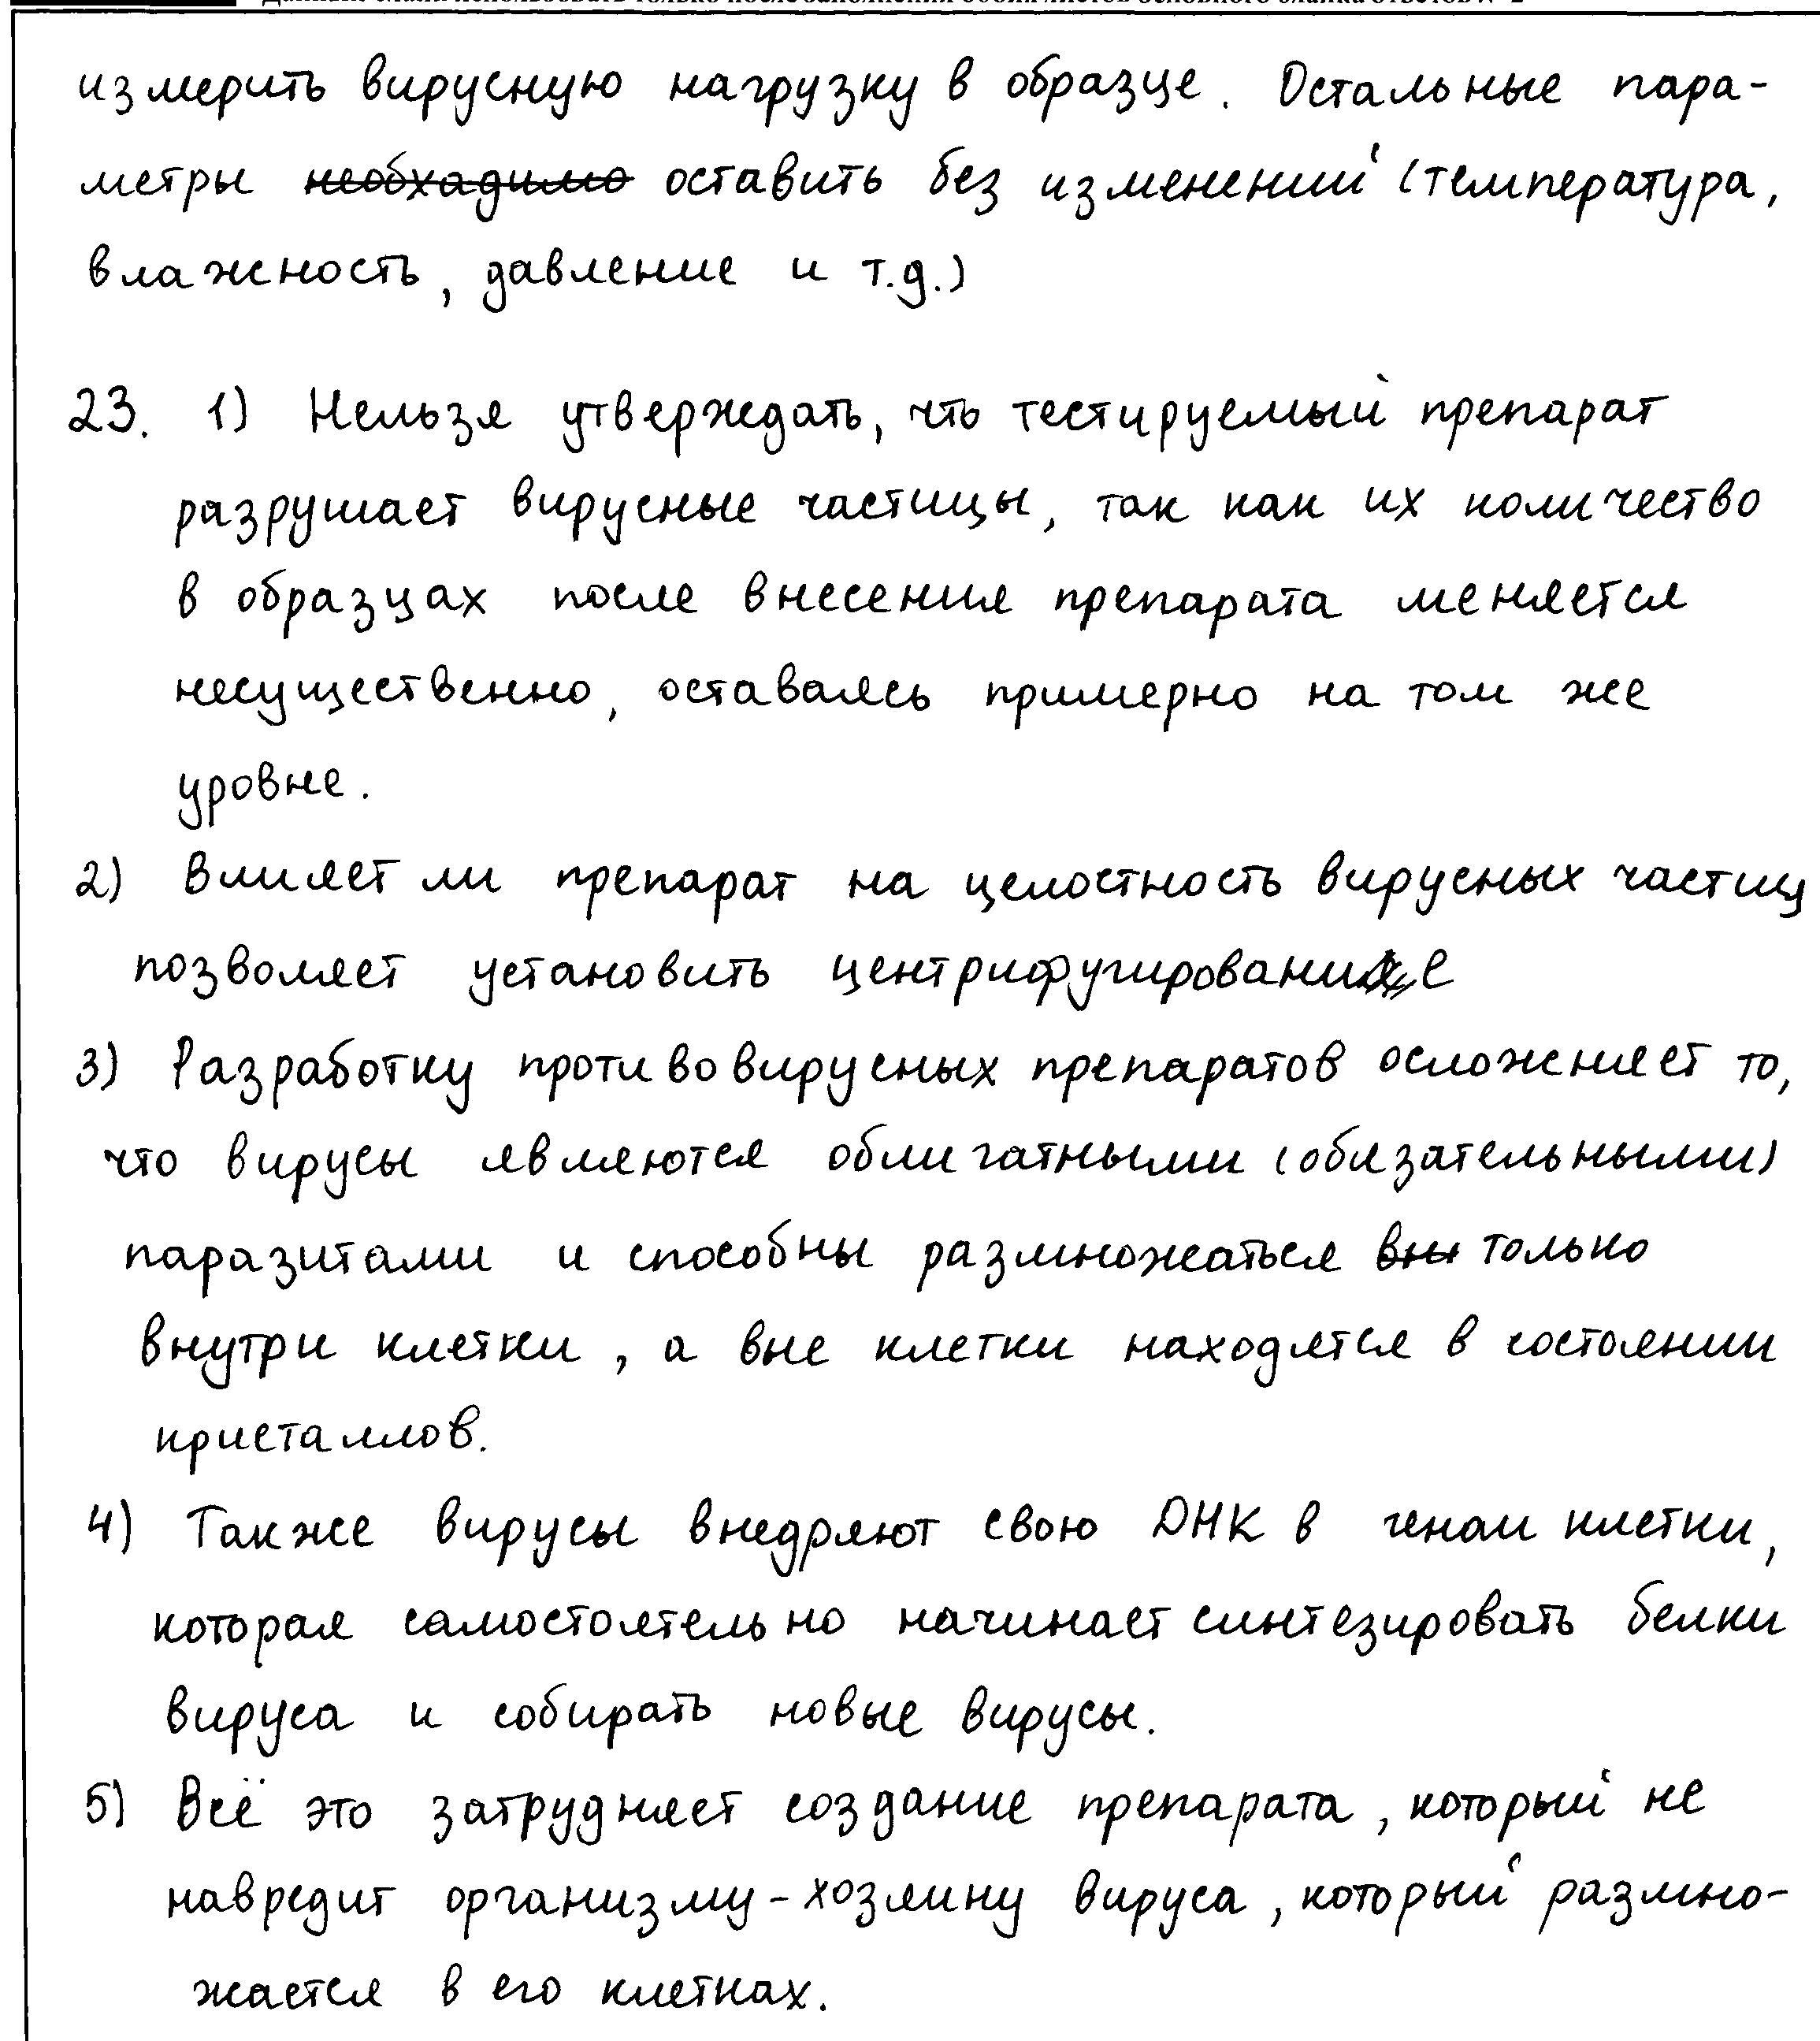 измерить вирусную нагрузку в образце. Остальные пара-
метры необхадимо оставить без изменений (температура,
влажность, давление и т.д.)
23. 1) Нельзя утверждать, что тестируемый препарат
разрушает вирусные частицы, так как их количество
в образцах после внесения препарата меняется
несущественно, оставаясь примерно на том же
уровне.
2) Влияет ли препарат на целостность вирусных частиц
позволяет установить центрифугирование
3) Разработку противовирусных препаратов осложняет то,
что вирусы являются облигатными (обязательными)
паразитами и способны размножаться вни только
внутри клетки, а вне клетки находятся в состоянии
кристаллов.
4) Также вирусы внедряют свою ДНК в геном клетки,
которая самостоятельно начинает синтезировать белки
вируса и собирать новые вирусы.
5) Всё это затрудняет создание препарата, который не
навредит организму-хозяину вируса, который размно-
жается в его клетках.